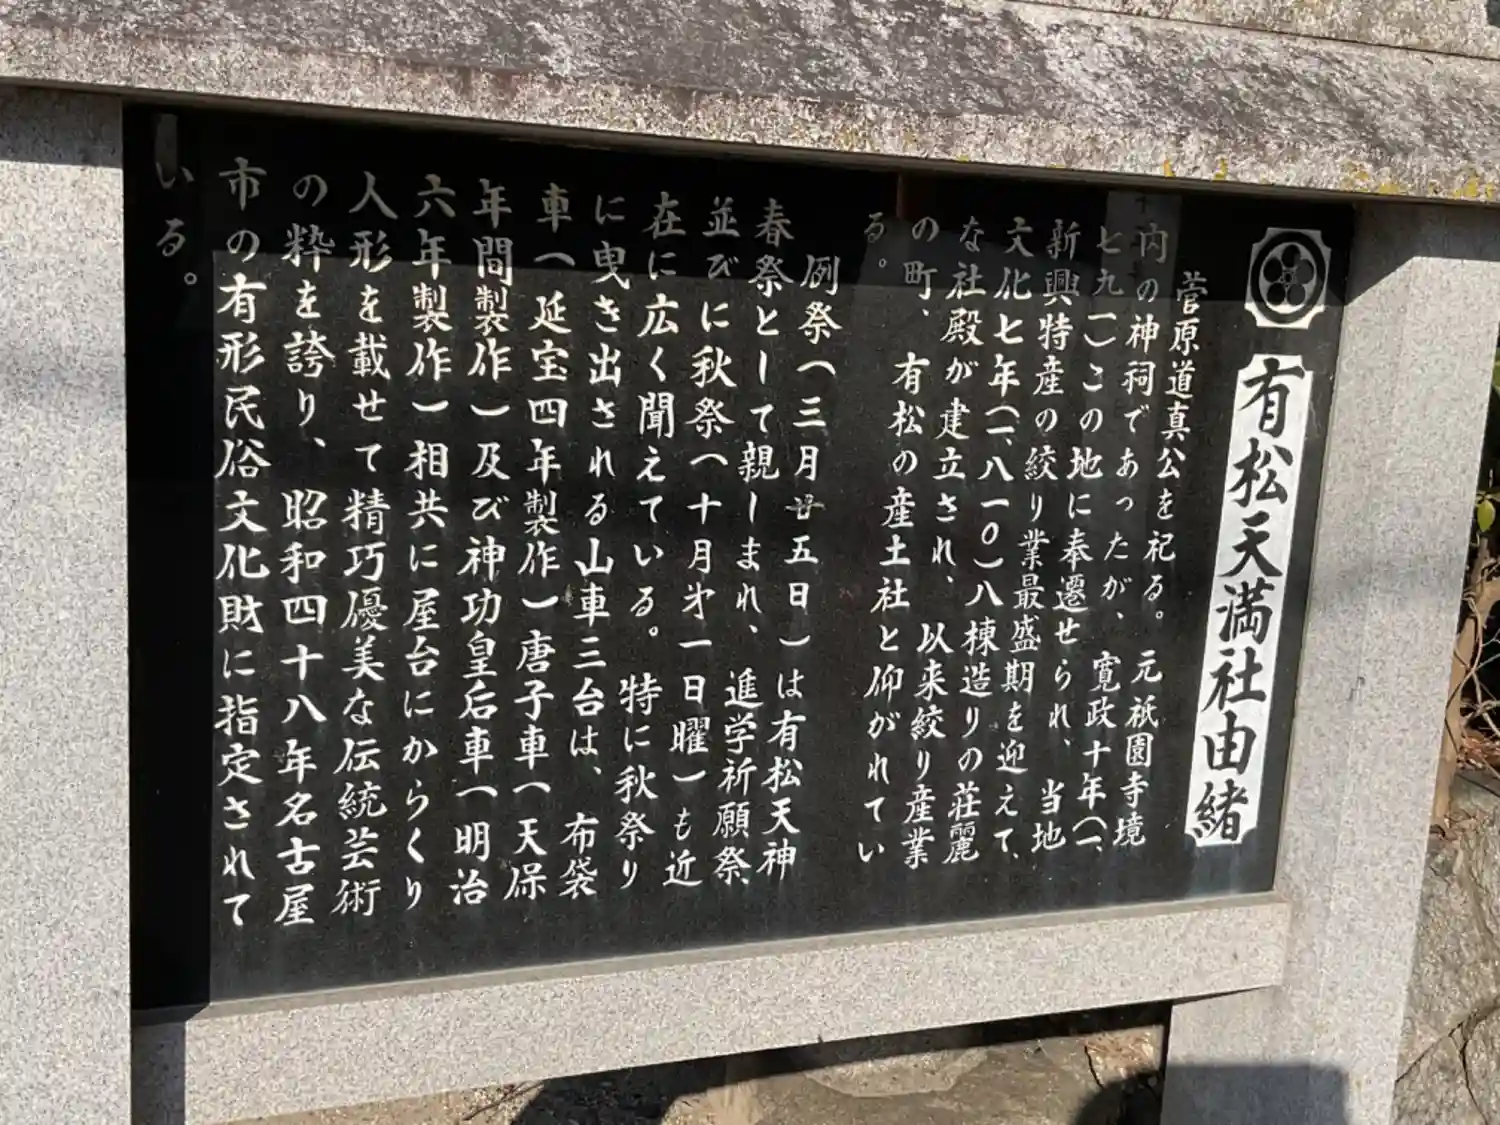 有松天満社由緒
菅原道真公を祀る。元祇園寺境
内の神祠であったが、寛政十年(一、
七九一)この地に奉遷せられ、当地
新興特産の絞り業最盛期を迎えて、
文化七年(一、八一〇)八棟造りの荘麗
な社殿が建立され、以来絞り産業
の町、有松の産土社と仰がれてい
る。
例祭(三月廿五日)は有松天神
春祭として親しまれ、進学祈願祭、
並びに秋祭(十月㐧一日曜)も近
在に広く聞えている。特に秋祭り
に曳き出される山車三台は、布袋
車(延宝四年製作)唐子車(天保
年間製作)及び神功皇后車(明治
六年製作)相共に屋台にからくり
人形を載せて精巧優美な伝統芸術
の粋を誇り、昭和四十八年名古屋
市の有形民俗文化財に指定されて
いる。